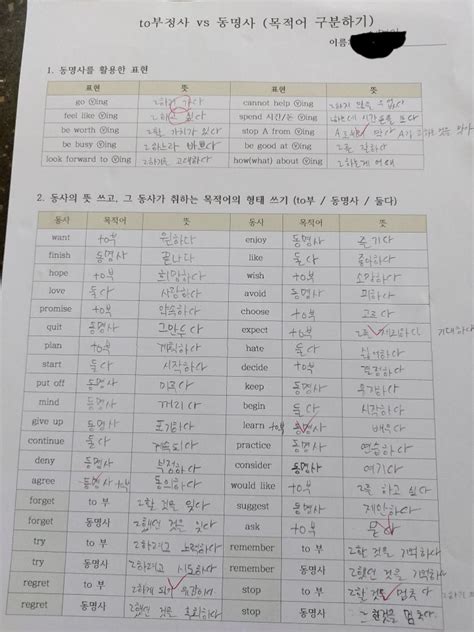 to부정사 vs 동명사 (목적어 구분하기)
이름:
1. 동명사를 활용한 표현
표현 뜻 표현 뜻
go ⓥing ~하러 가다 cannot help ⓥing ~하지 않을 수 없다
feel like ⓥing ~하고 싶다 spend 시간/돈 ⓥing ~하는데 시간/돈을 쓰다
be worth ⓥing ~할 가치가 있다 stop A from ⓥing A가 하는 것을 막다
be busy ⓥing ~하느라 바쁘다 be good at ⓥing ~를 잘하다
look forward to ⓥing ~하기를 고대하다 how(what) about ⓥing ~하는게 어때
2. 동사의 뜻 쓰고, 그 동사가 취하는 목적어의 형태 쓰기 (to부 / 동명사 / 둘다)
동사 목적어 뜻 동사 목적어 뜻
want to부 원하다 enjoy 동명사 즐기다
finish 동명사 끝나다 like 둘다 좋아하다
hope to부 희망하다 wish to부 소망하다
love 둘다 사랑하다 avoid 동명사 피하다
promise to부 약속하다 choose to부 고르다
quit 동명사 그만두다 expect to부 기대하다
plan to부 계획하다 hate 둘다 싫어하다
start 둘다 시작하다 decide to부 결정하다
put off 동명사 미루다 keep 동명사 유지하다
mind 동명사 꺼리다 begin 둘다 시작하다
give up 동명사 포기하다 learn to부 동명사 배우다
continue 둘다 계속되다 practice 동명사 연습하다
deny 동명사 부정하다 consider 동명사 여기다
agree 동명사 to부 동의하다 would like to부 ~를 하고 싶다
forget to 부 ~할 것을 잊다 suggest 동명사 제안하다
forget 동명사 ~했던 것을 잊다 ask to부 묻다
try to 부 ~하려고 노력하다 remember to 부 ~할 것을 기억하다
try 동명사 ~하려고 시도하다 remember 동명사 ~했던 것을 기억하다
regret to 부 ~하게 되어 유감이다 stop to 부 ~할 것을 멈추다
regret 동명사 ~했던 것을 후회하다 stop 동명사 ~하던 것을 멈추다